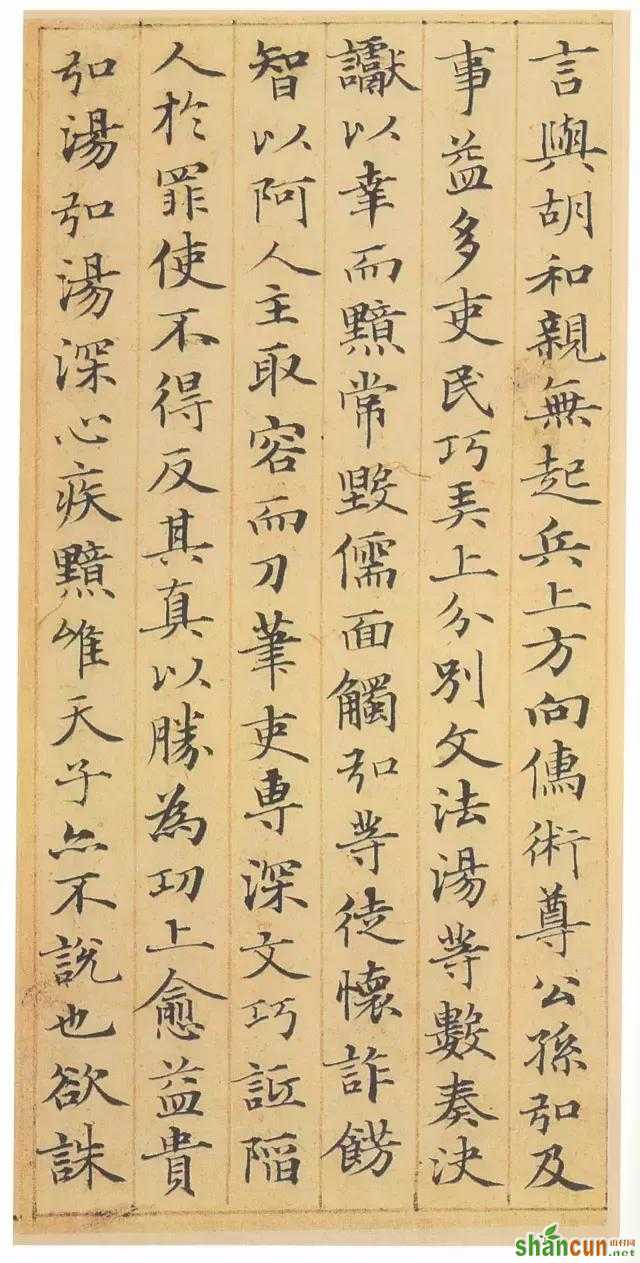 言與胡和親無起兵上方向儒術尊公孫弘及
事益多吏民巧弄上分別文法湯等數奏決
讞以幸而黯常毀儒面觸弘等徒懷詐飾
智以阿人主取容而刀筆吏專深文巧詆陷
人於罪使不得反其真以勝為功上愈益貴
弘湯弘湯深心疾黯唯天子亦不說也欲誅
shancun 山村网 .net